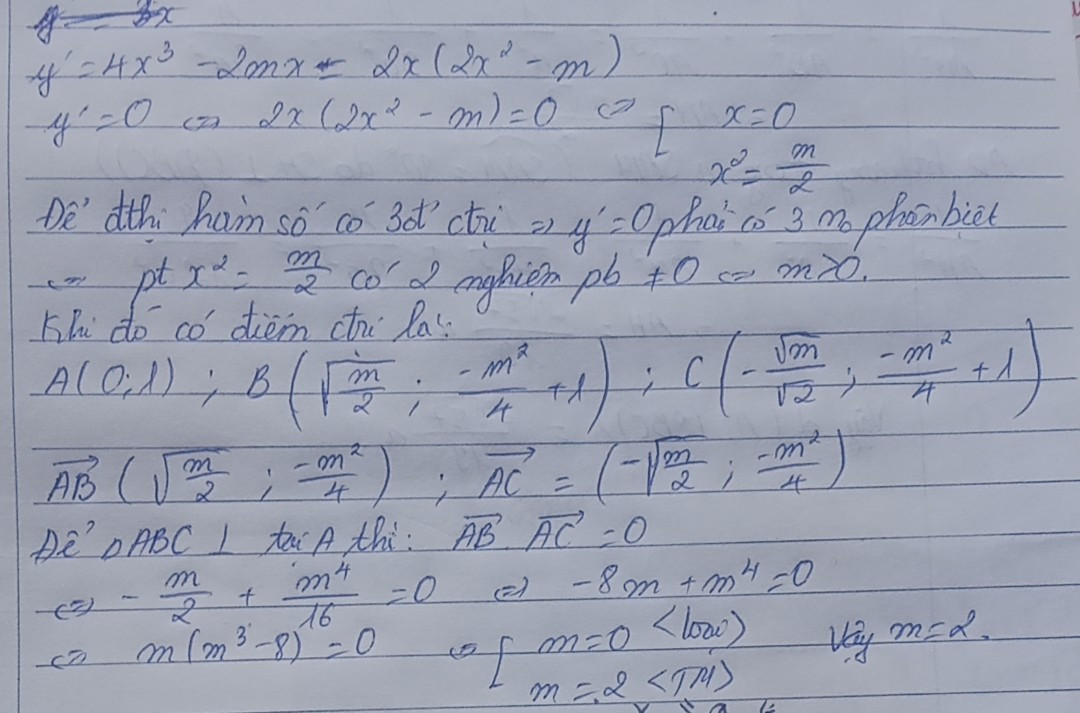 y' = 4x³ - 2mx = 2x(2x² - m)
y' = 0 ⇔ 2x(2x² - m) = 0 ⇔ [ x = 0
x² = m/2
Để đthị hàm số có 3 đ' ctrị ⇒ y' = 0 phải có 3 n₀ phân biệt
⇔ pt x² = m/2 có 2 nghiệm pb ≠ 0 ⇔ m > 0.
Khi đó có điểm ctrị là:
A(0;1) ; B(√(m/2) ; -m²/4 + 1) ; C(-√m/√2 ; -m²/4 + 1)
AB→ (√(m/2) ; -m²/4) ; AC→ = (-√(m/2) ; -m²/4)
Để △ABC ⊥ tại A thì: AB→ . AC→ = 0
⇔ -m/2 + m⁴/16 = 0 ⇔ -8m + m⁴ = 0
⇔ m(m³ - 8) = 0 ⇔ [ m = 0 <loại> Vậy m = 2.
m = 2 <TM>